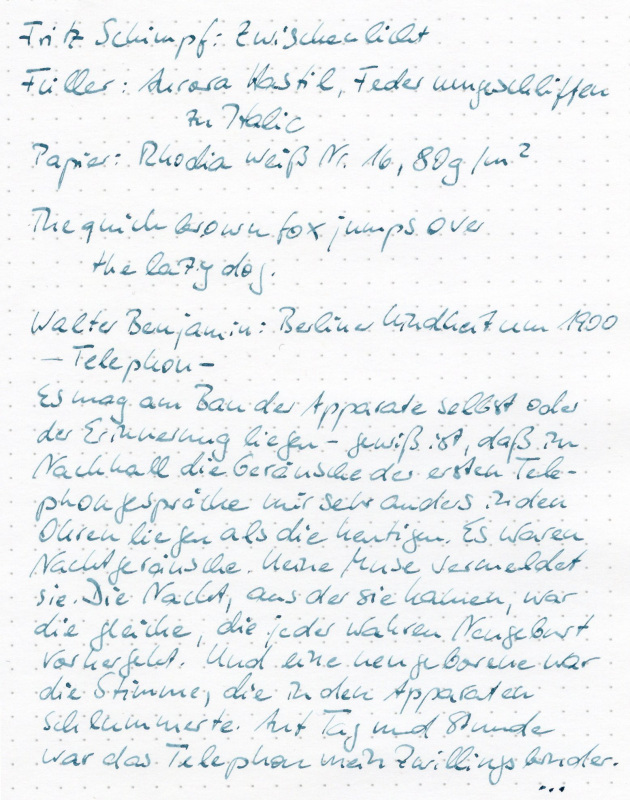 Fritz Schimpf: Zwischenlicht
Füller: Aurora Hastil, Feder umgeschliffen
zu Italic
Papier: Rhodia weiß Nr. 16, 80g/m²
The quick brown fox jumps over
the lazy dog.
Walter Benjamin: Berliner Kindheit um 1900
– Telephon –
Es mag am Bau der Apparate selbst oder
der Erinnerung liegen – gewiß ist, daß im
Nachhall die Geräusche der ersten Tele-
phongespräche mir sehr anders in den
Ohren liegen als die heutigen. Es waren
Nachtgeräusche. Keine Muse vermeldet
sie. Die Nacht, aus der sie kamen, war
die gleiche, die jeder wahren Neugeburt
vorhergeht. Und eine neugeborene war
die Stimme, die in den Apparaten
schlummerte. Auf Tag und Stunde
war das Telephon mein Zwillingsbruder.
...